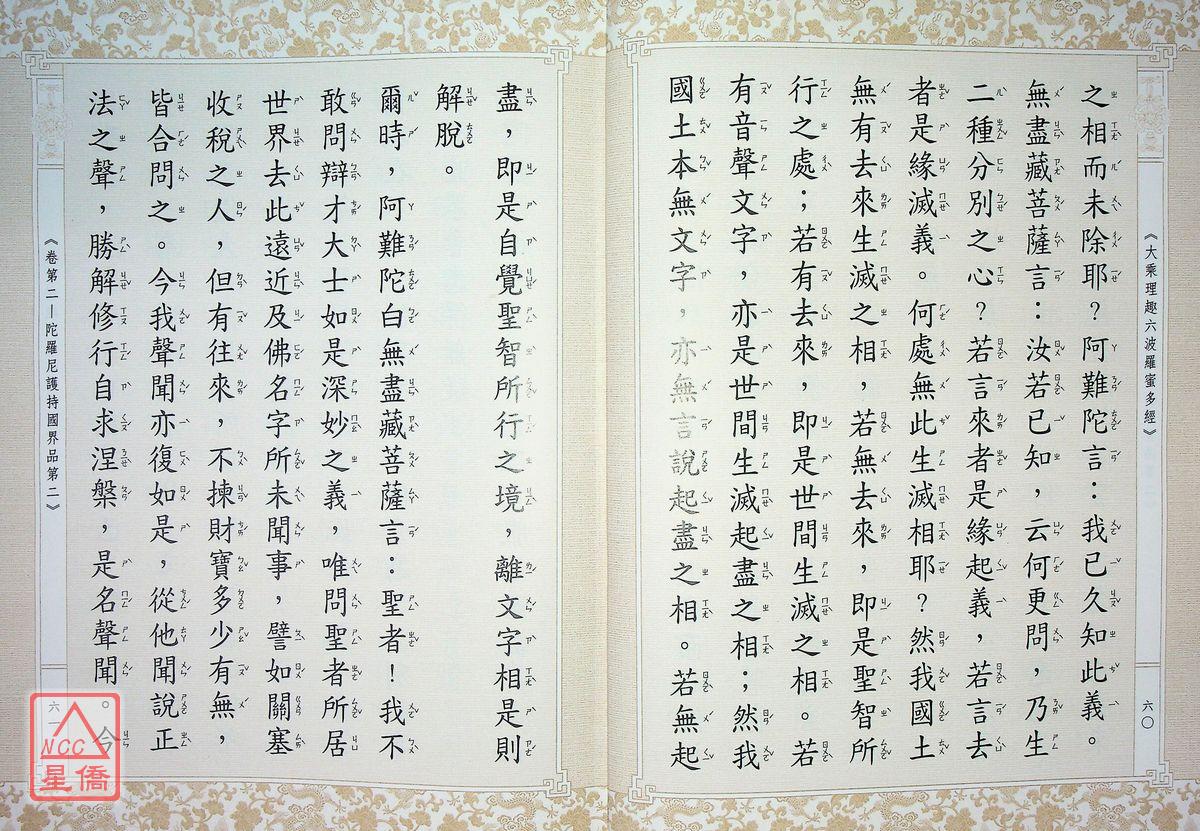 《大乘理趣六波羅蜜多經》
六〇
之相而未除耶？阿難陀言：我已久知此義。
無盡藏菩薩言：汝若已知，云何更問，乃生
二種分別之心？若言來者是緣起義，若言去
者是緣滅義。何處無此生滅相耶？然我國土
無有去來生滅之相，若無去來，即是聖智所
行之處；若有去來，即是世間生滅之相。若
有音聲文字，亦是世間生滅起盡之相；然我
國土本無文字，亦無言說起盡之相。若無起
盡，即是自覺聖智所行之境，離文字相是則
解脫。
爾時，阿難陀白無盡藏菩薩言：聖者！我不
敢問辯才大士如是深妙之義，唯問聖者所居
世界去此遠近及佛名字所未聞事，譬如關塞
收稅之人，但有往來，不揀財寶多少有無，
皆合問之。今我聲聞亦復如是，從他聞說正
法之聲，勝解修行自求涅槃，是名聲聞。今
《卷第二—陀羅尼護持國界品第二》
六一
NCC
星僑